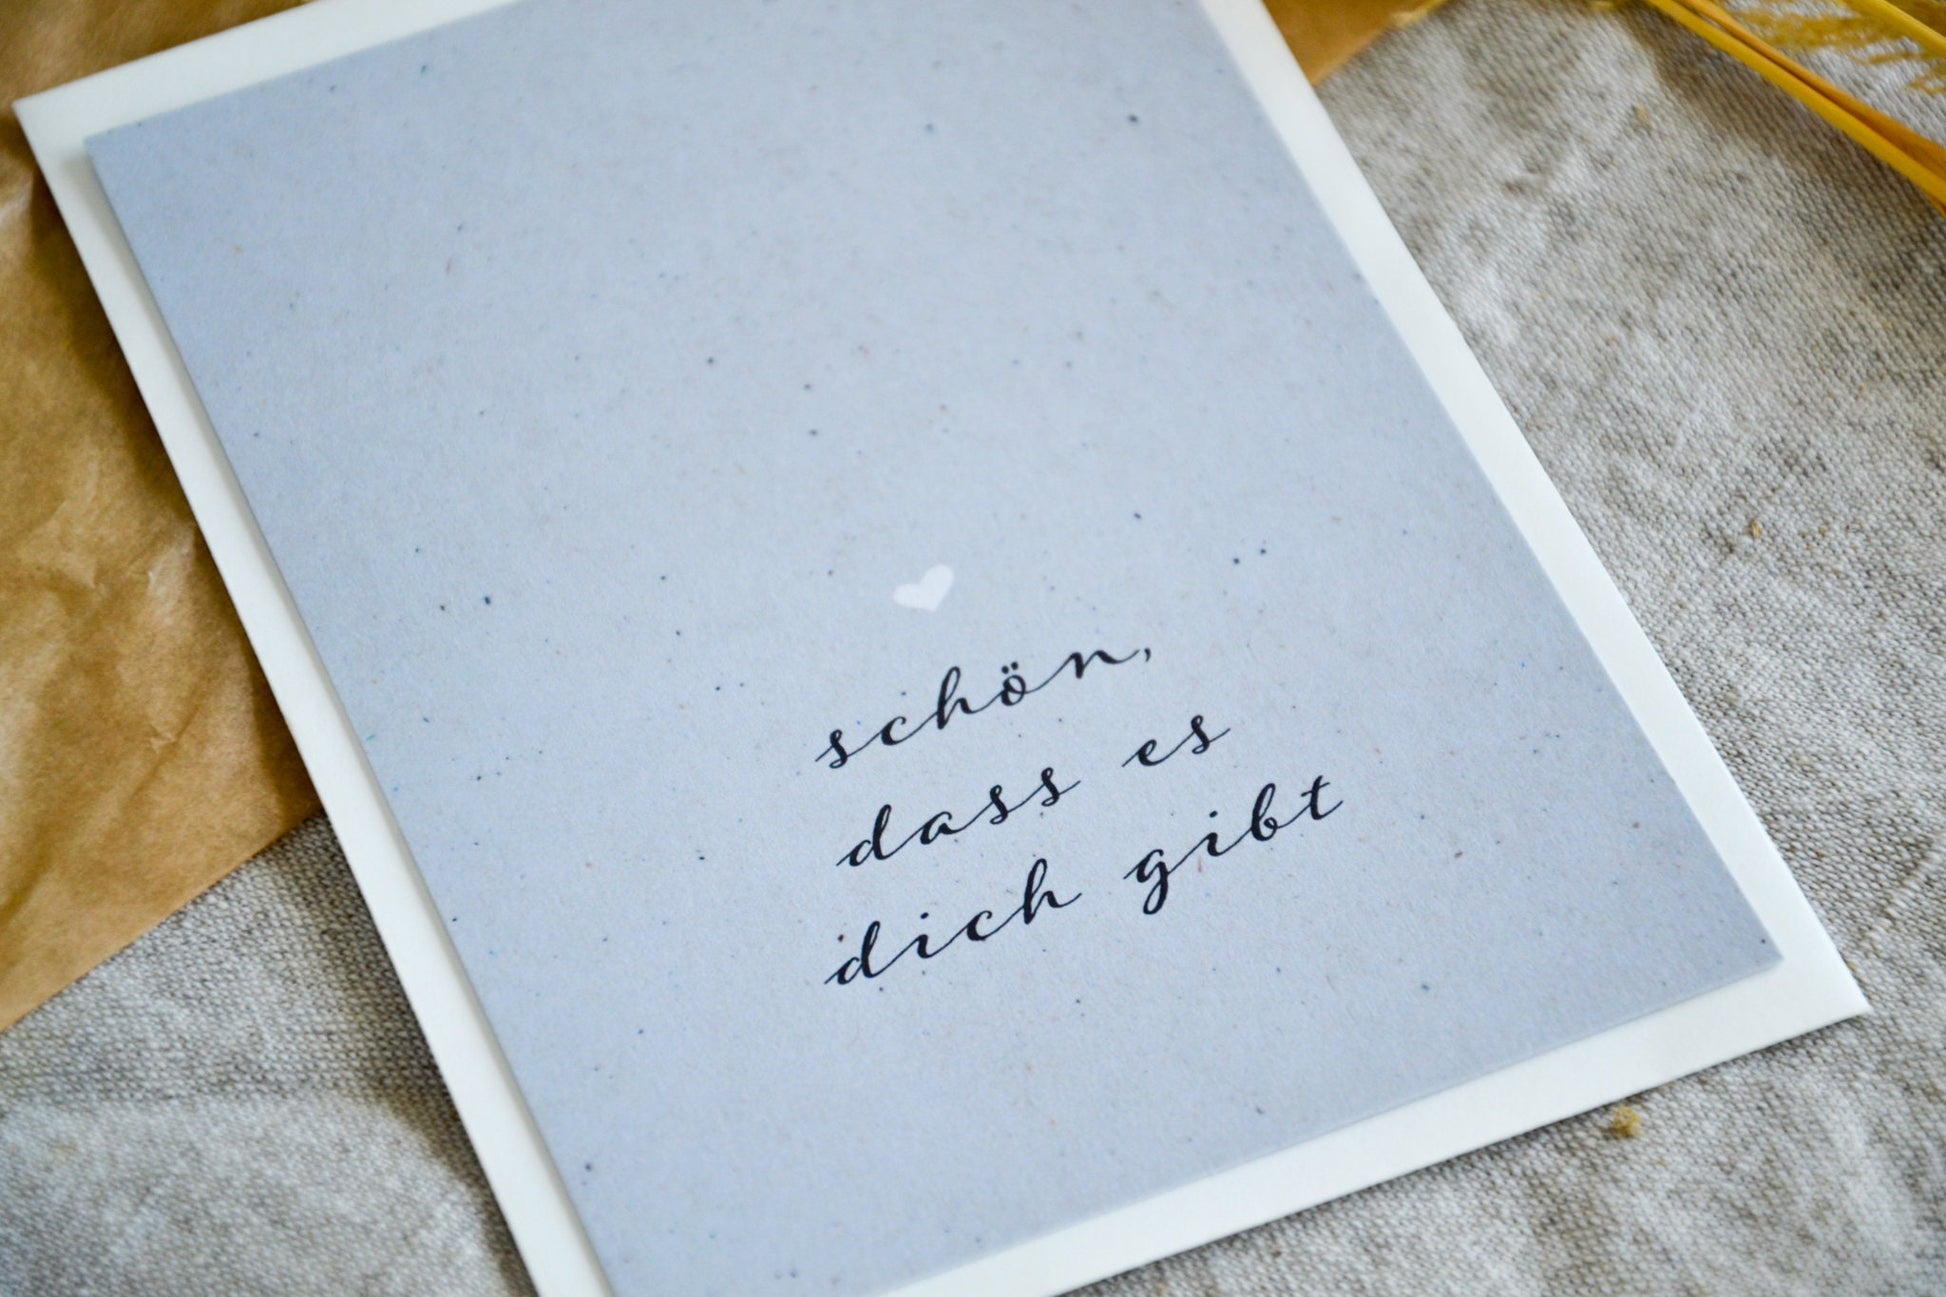 schön,
dass es
dich gibt